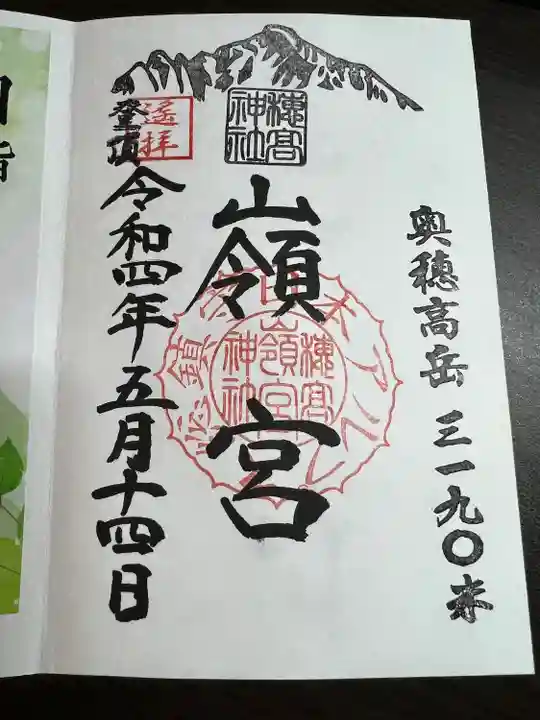 奥穂高岳 三一九〇米
穂高
神社
嶺宮
穂高
嶺宮
神社
遙拝
登頂
令和四年五月十四日